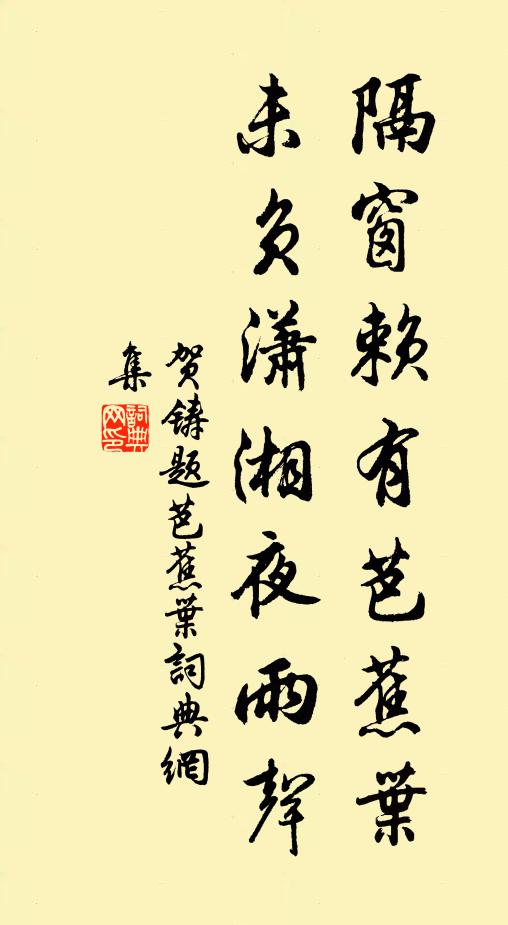 隔窗賴有芭蕉葉
未負瀟湘夜雨聲
贺鑄題芭蕉葉詞典網
集
詞典网印